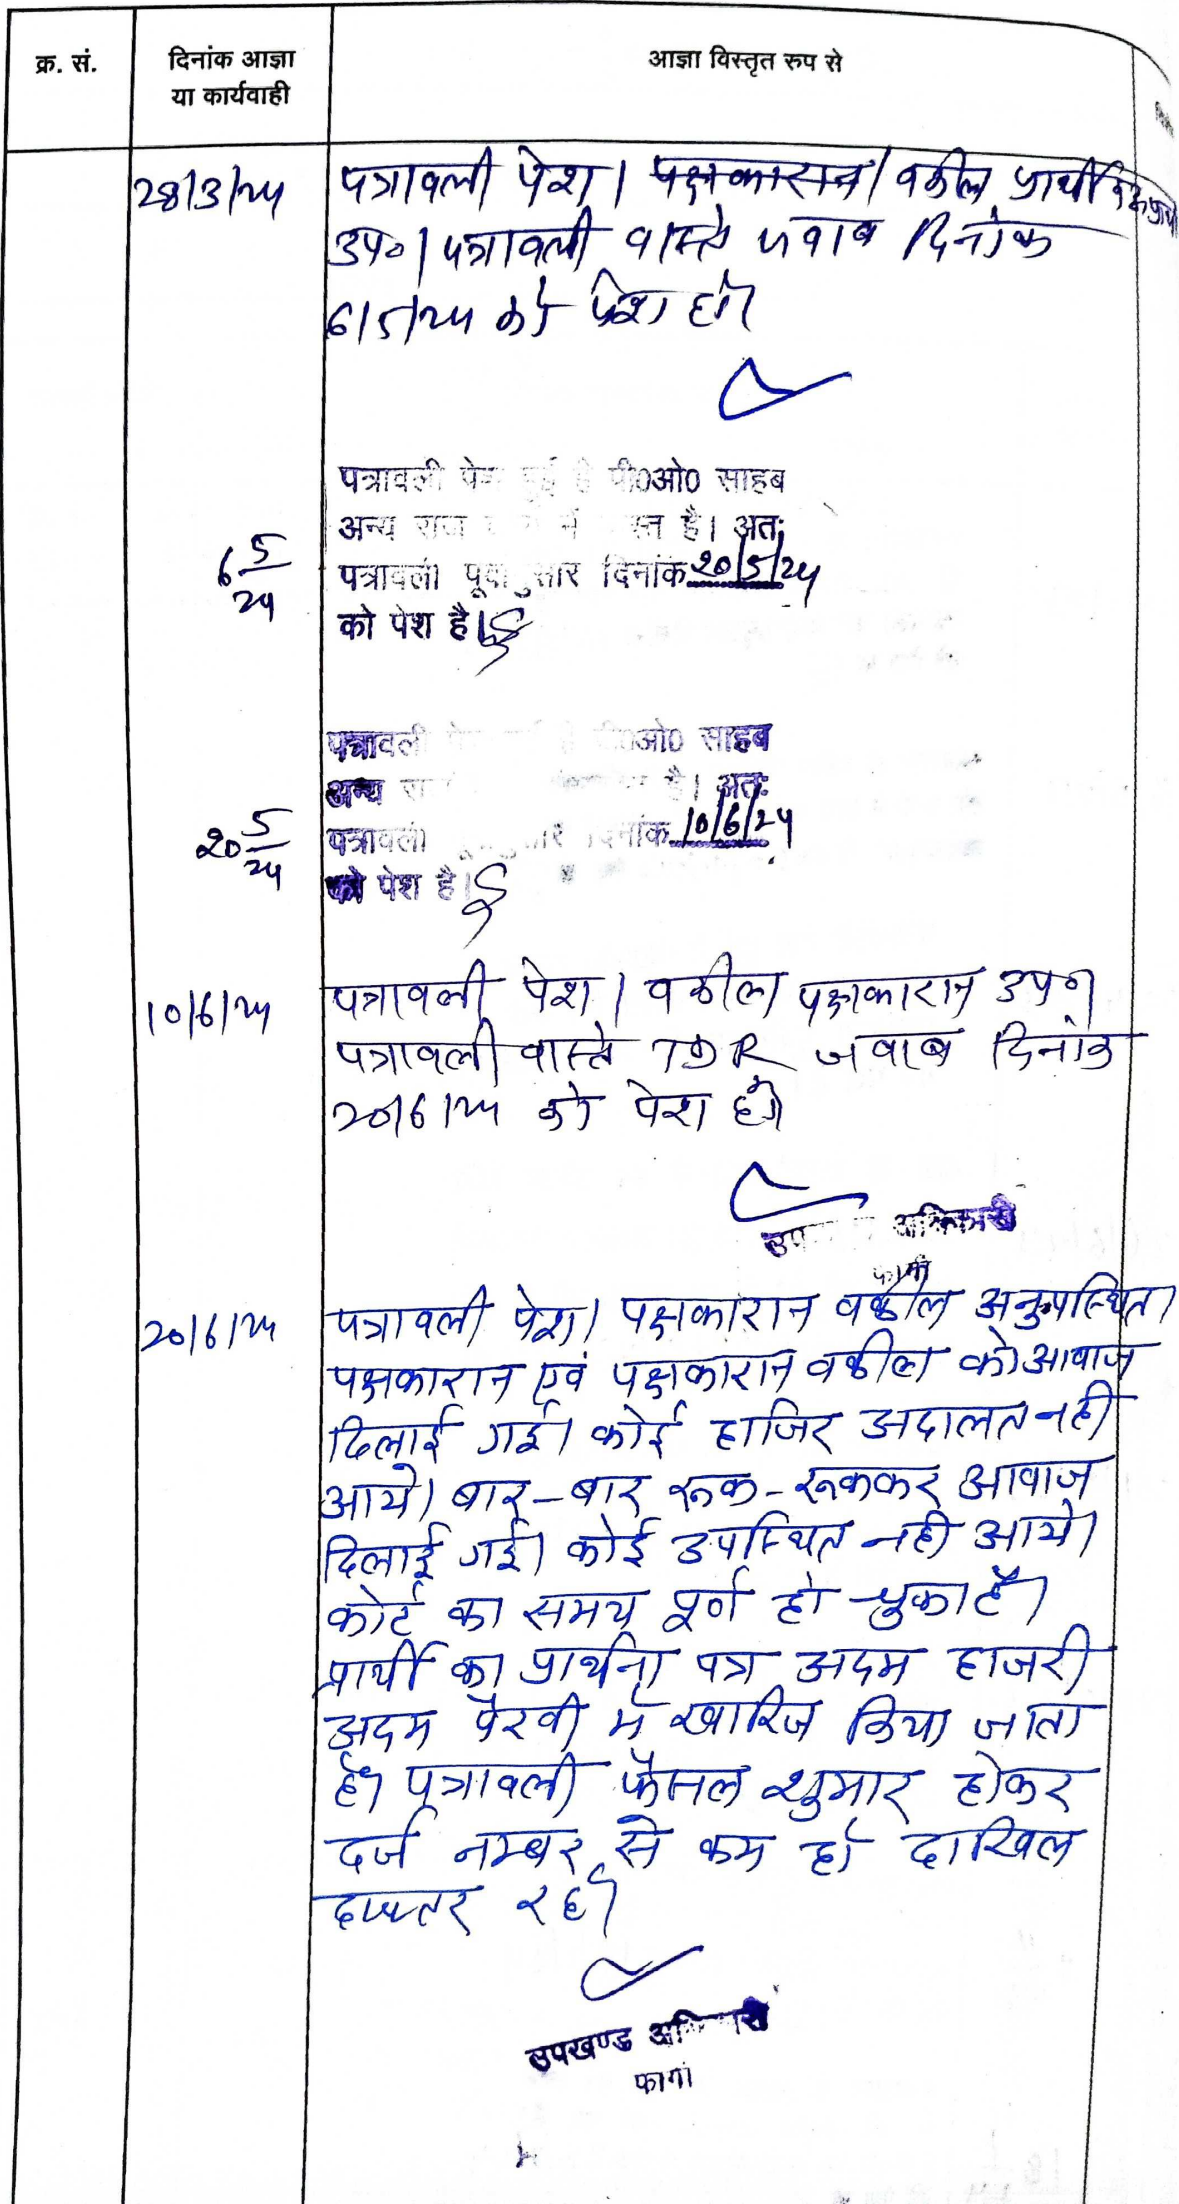 क्र. सं.
दिनांक आज्ञा
या कार्यवाही
आज्ञा विस्तृत रुप से
28/3/24
पत्रावली पेश। वकील प्रार्थी
उप०। पत्रावली वास्ते जवाब दिनांक
6/5/24 को पेश हो।
पत्रावली पेश हुई है पी0ओ0 साहब
अन्य राज में है। अतः
6 5/24
पत्रावली पूर्वानुसार दिनांक 20/5/24
को पेश है।
पत्रावली साहब
अन्य है। अतः
20 5/24
पत्रावली दिनांक 10/6/24
को पेश है।
10/6/24
पत्रावली पेश। वकील पक्षकारान उप०।
पत्रावली वास्ते TDR जवाब दिनांक
20/6/24 को पेश हो।
उप अधिकारी
फागी
20/6/24
पत्रावली पेश। पक्षकारान वकील अनुपस्थित।
पक्षकारान एवं पक्षकारान वकील को आवाज
दिलाई गई। कोई हाजिर अदालत नही
आये। बार-बार रूक-रूककर आवाज
दिलाई गई। कोई उपस्थित नही आये।
कोर्ट का समय पूर्ण हो चुका है।
प्रार्थी का प्रार्थना पत्र अदम हाजरी
अदम पैरवी में खारिज किया जाता
है। पत्रावली फैसल शुमार होकर
दर्ज नम्बर से कम हो दाखिल
दफ्तर रहे।
उपखण्ड अधिकारी
फागी